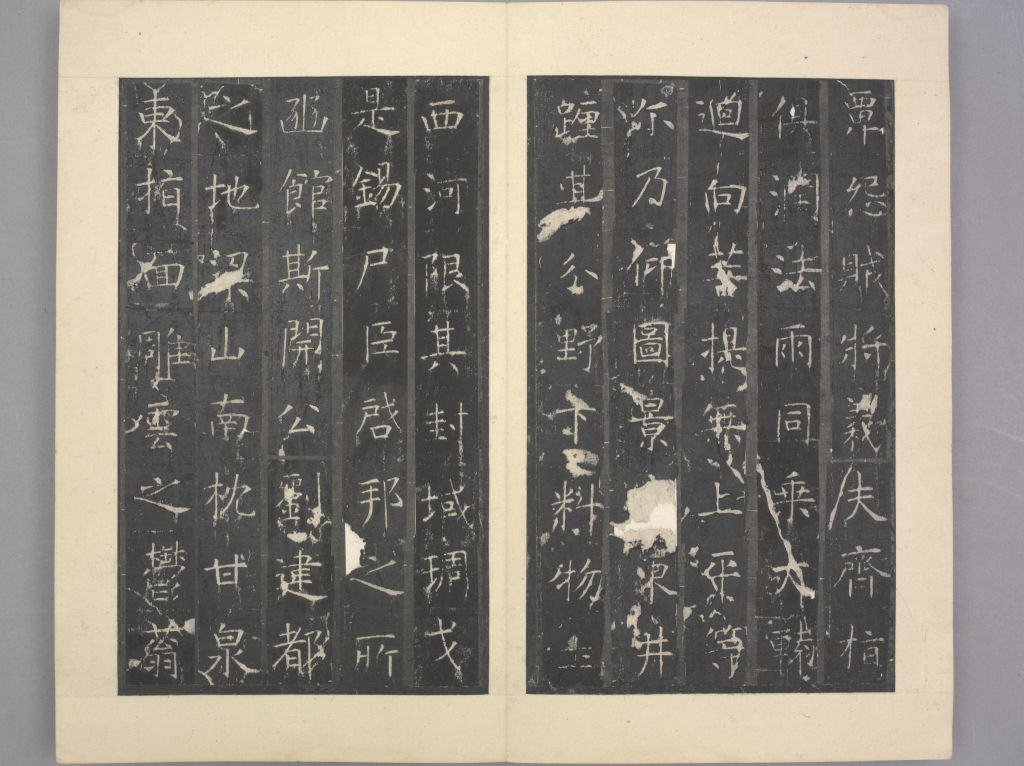 覃怨賊將義夫齊指
俱潤法雨同乘大
迴向菩提無上平等
尒乃仰圖景東井
躔其分野下料物土
西河限其封域琱戈
是錫尸臣啓邦之所
豳館斯開公劉建都
之地梁山南枕甘泉
東指面雕雲之鬱蓊